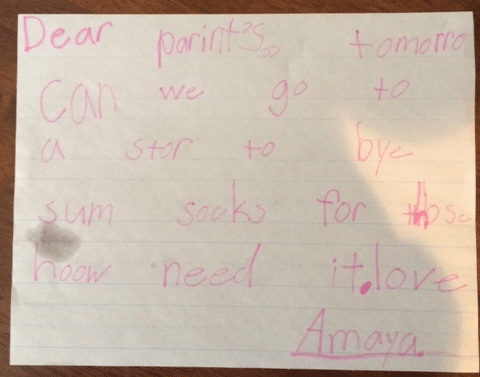 Dear parint's,, tomorro
Can we go to
a stor to bye
sum socks for those
hoow need it. love
Amaya.